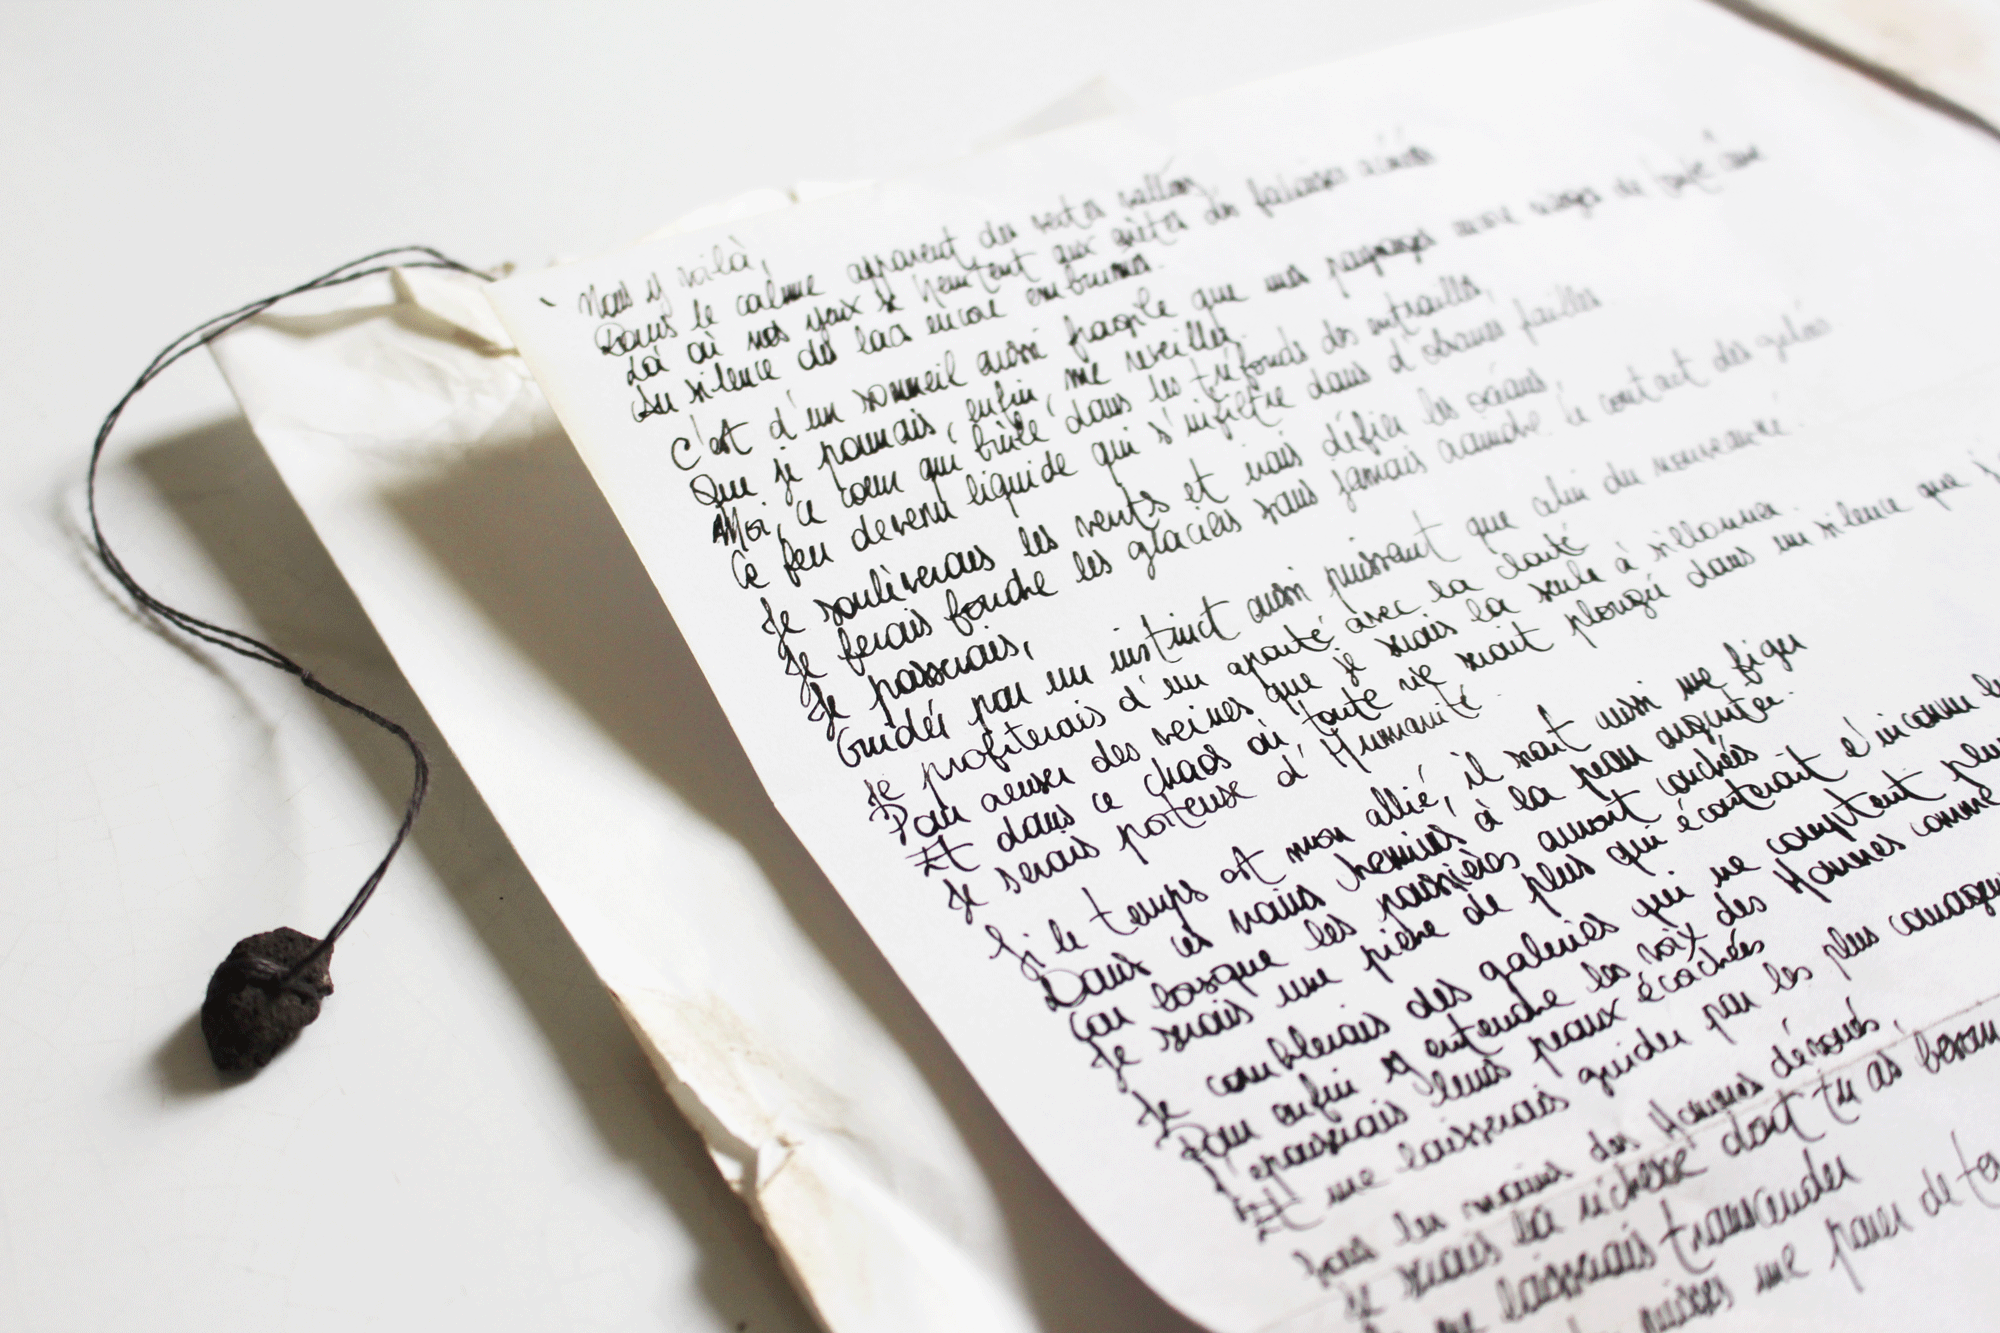 Nous y voilà,
Dans le calme apparent des vastes vallons
Là où nos yeux se heurtent aux arêtes des falaises acérées
Au silence des lacs encore embrumés.
C'est d'un sommeil aussi fragile que mes paysages
Que je pourrais, enfin, me réveiller.
Moi, ce cœur qui brûle dans les tréfonds des entrailles,
Ce feu devenu liquide qui s'infiltre dans d'obscures failles
Je soulèverais les vents et irais défier les océans,
Je ferais fondre les glaciers sans jamais craindre le contact des gelées
Je passerais,
Guidée par un instinct aussi puissant que celui du nouveau né.
Je profiterais d'un aparté avec la
Pour creuser des veines que je serais la seule à sillonner
Et dans ce chaos où toute vie serait plongée dans un silence que
Je serais porteuse d'Humanité.
Si le temps est mon allié, il serait aussi me figer
Dans ces vains chemins à la peau argentée.
Car lorsque les poussières auront couchées
Je serais une pierre de plus qui écouterait l'inconnu
Je comblerais des galeries qui ne comptent plus
Pour enfin y entendre les voix des Hommes comme
J'épouserais leurs peaux écorchées
Et me laisserais guider par les plus
Sous les mains des Hommes dévoués,
Je serais la richesse dont tu as besoin
me laisserais transcender
me parer de